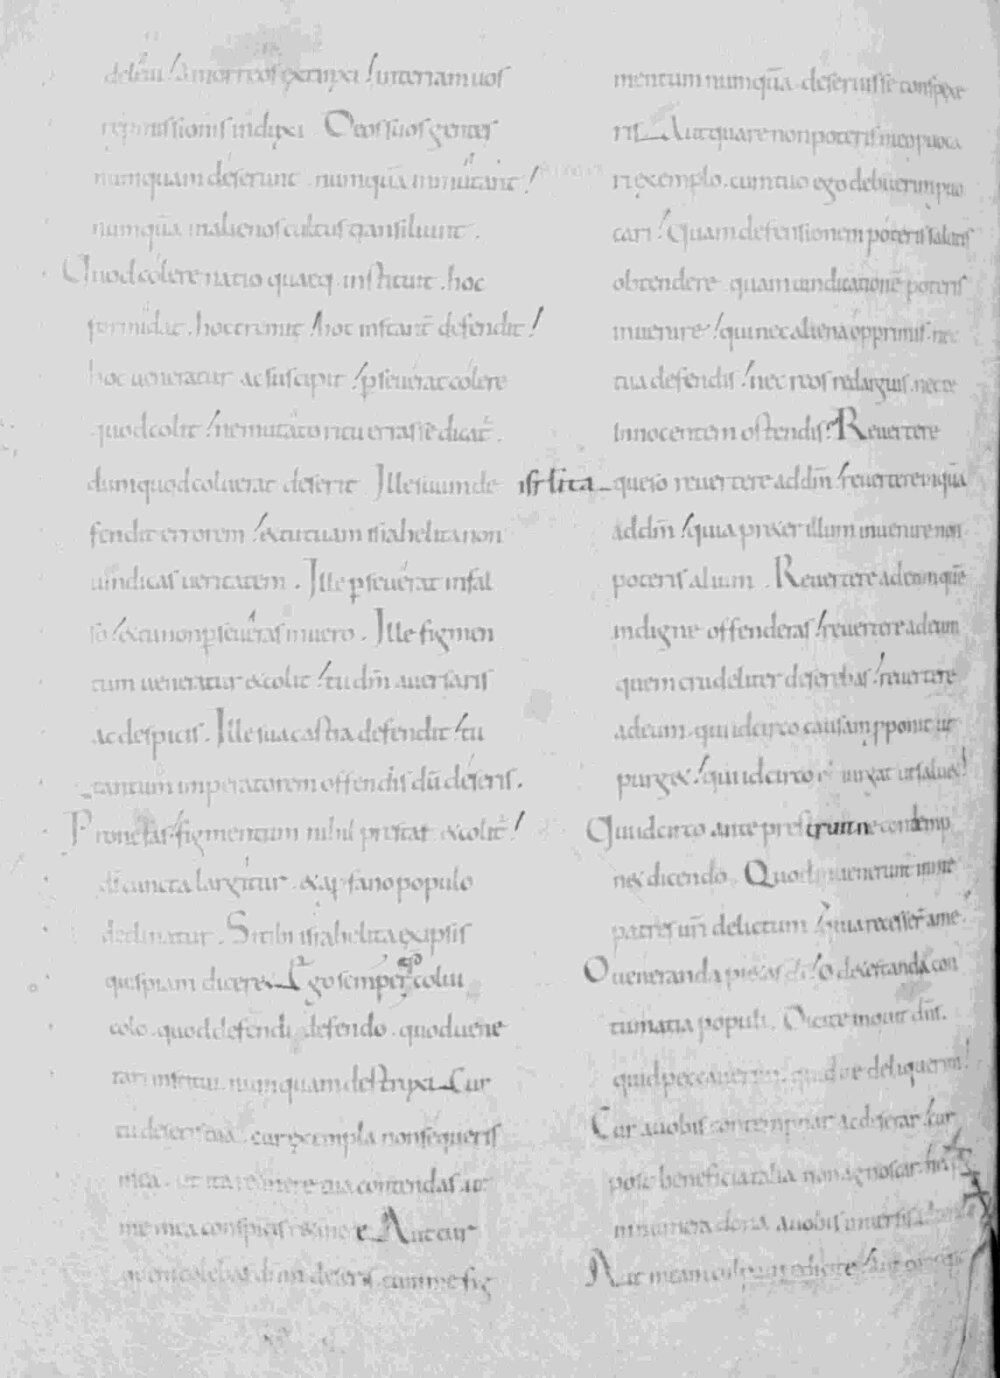 deleui amorreos extinxi in terram uos
repromissionis induxi Deos suos gentes
numquam deserunt . numquā inmutant
numquā in alienos cultus transiliunt .
Quod colere natio quaeq. instituit . hoc
formidat . hoc tremit hoc instant̄ defendit
hoc ueneratur ac suscipit ꝑseuerat colere
quod colit ne mutato ritu errasse dicat̄ .
dum quod coluerat deserit Ille suum de
fendit errorem & tu tuam israhelita non
uindicas ueritatem . Ille ꝑseuerat in fal
so & tu non ꝑseueras in uero . Ille figmen
tum ueneratur & colit tu dm̄ auersaris
ac despicis . Ille sua castra defendit tu
tantum imperatorem offendis dū deseris .
Pro nefas figmentum nihil prestat & colit̄
ds̄ cuncta largitur . & a ꝓfano populo
declinatur . Si tibi israhelita ex ipsis
quispiam diceret Ego semper ego colui
colo . quod defendi defendo . quod uene
rari institui numquam destruxi Cur
tu deseris tua . cur exempla non sequeris
mea . ut ita temere tua contendas ut
me mea conspicis retinere Aut cur
quem colebas dīm deseris . cum me fig
mentum numquā deseruisse conspexe
ris Aut quare non poteris meo prouoca
ri exemplo . cum tuo ego debuerim prouo
cari Quam defensionem poteris salutis
obtendere quam uindicationē poteris
inuenire qui nec aliena opprimis . nec
tua defendis nec reos redarguis . nec te
innocentem ostendis? Reuertere
isrlita queso reuertere ad dm̄ reuertere inquā
ad dm̄ quia preter illum inuenire non
poteris alium . Reuertere ad eum quē
indigne offenderas reuertere ad eum
quem crudeliter deserebas reuertere
ad eum . qui idcirco causam ꝓponit ut
purget qui idcirco iurgat ut saluet
Qui idcirco ante prestruit ne condemp
net dicendo . Quod inuenerunt in me
patres uri delictum quia recesser̄ a me
O ueneranda pietas dī O detestanda con
tumatia populi . Dicite inquit dn̄s .
quid peccauerim . quid ue deliquerim
Cur a uobis contempnar ac deserar cur
post beneficia talia non agnoscar
innumera dona a uobis
Aut meam culpam edicite aut